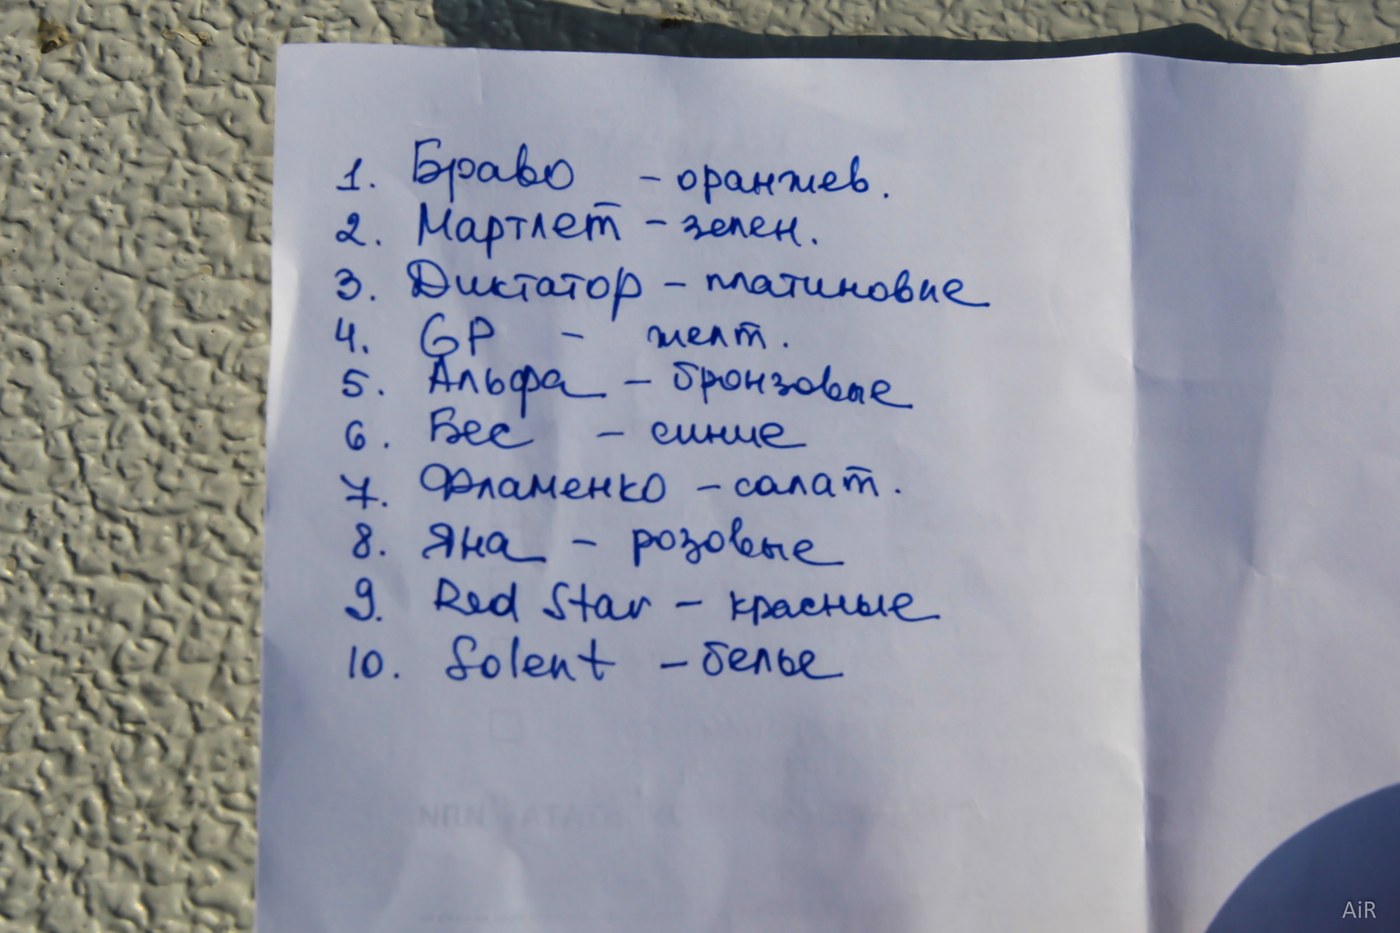 1. Браво - оранжев.
2. Мартлет - зелен.
3. Диктатор - платиновые
4. GP - желт.
5. Альфа - бронзовые
6. Бес - синие
7. Фламенко - салат.
8. Яна - розовые
9. Red Star - красные
10. Solent - белые
AiR